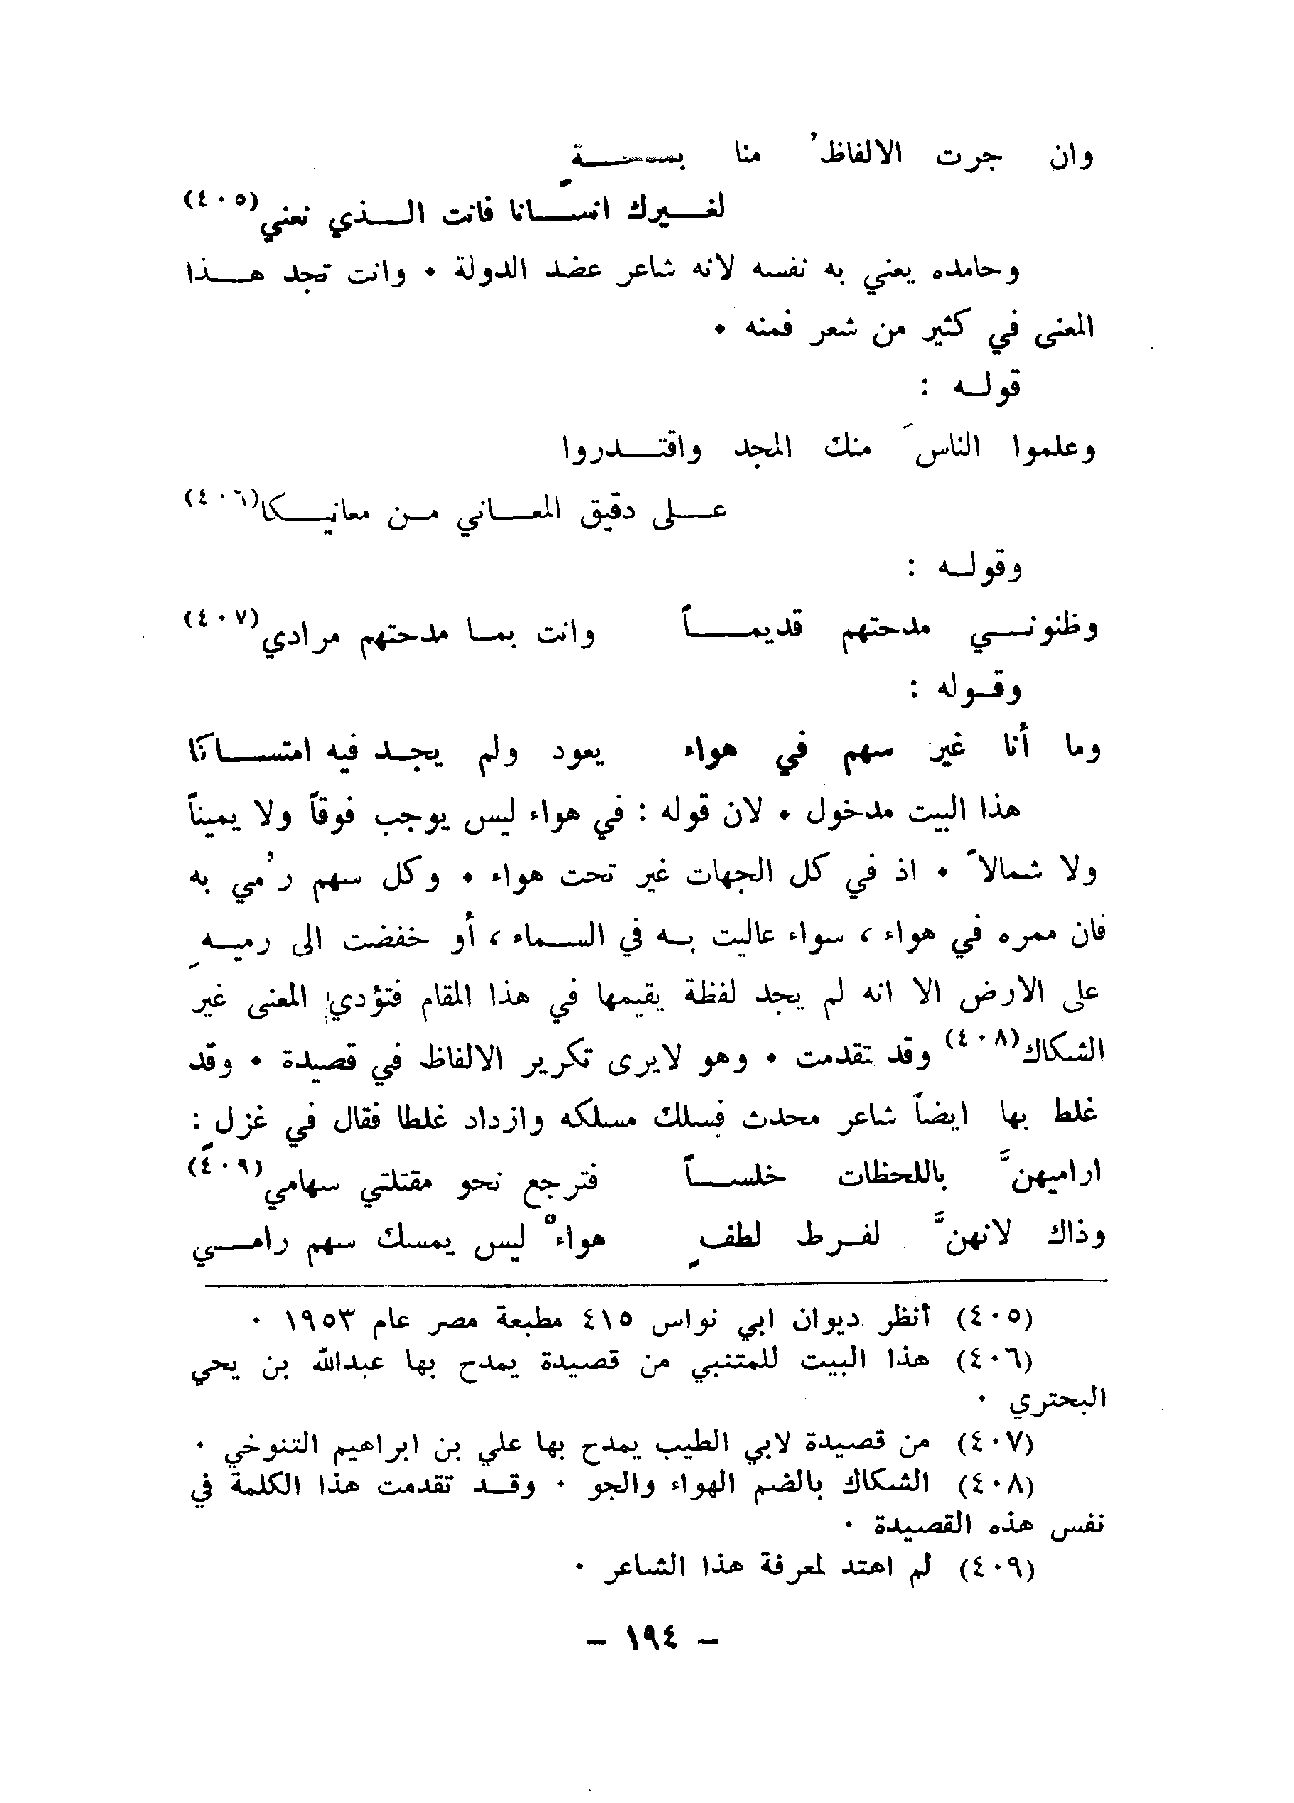 وان جرت الالفاظُ منا بمدحةٍ
لغيرك انسانا فانت الذي نعني(٤٠٥)
وحامده يعني به نفسه لانه شاعر عضد الدولة . وانت تجد هذا
المعنى في كثير من شعر فمنه .
قوله :
وعلموا الناسَ منك المجد واقتدروا
على دقيق المعاني من معانيكا(٤٠٦)
وقوله :
وظنوني مدحتهم قديماً وانت بما مدحتهم مرادي(٤٠٧)
وقوله :
وما أنا غير سهم في هواء يعود ولم يجد فيه امتساكا
هذا البيت مدخول . لان قوله : في هواء ليس يوجب فوقاً ولا يميناً
ولا شمالاً . اذ في كل الجهات غير تحت هواء . وكل سهم رُمي به
فان ممره في هواء ، سواء عاليت به في السماء ، أو خفضت الى رميه
على الارض الا انه لم يجد لفظة يقيمها في هذا المقام فتؤدي المعنى غير
الشكاك(٤٠٨) وقد تقدمت . وهو لايرى تكرير الالفاظ في قصيدة . وقد
غلط بها ايضاً شاعر محدث فسلك مسلكه وازداد غلطا فقال في غزلٍ :
اراميهنَّ باللحظات خلساً فترجع نحو مقتلتي سهامي(٤٠٩)
وذاك لانهنَّ لفرط لطفٍ هواءٌ ليس يمسك سهم رامي
(٤٠٥) أنظر ديوان ابي نواس ٤١٥ مطبعة مصر عام ١٩٥٣ .
(٤٠٦) هذا البيت للمتنبي من قصيدة يمدح بها عبدالله بن يحي
البحتري .
(٤٠٧) من قصيدة لابي الطيب يمدح بها علي بن ابراهيم التنوخي .
(٤٠٨) الشكاك بالضم الهواء والجو . وقد تقدمت هذا الكلمة في
نفس هذه القصيدة .
(٤٠٩) لم اهتد لمعرفة هذا الشاعر .
– ١٩٤ –